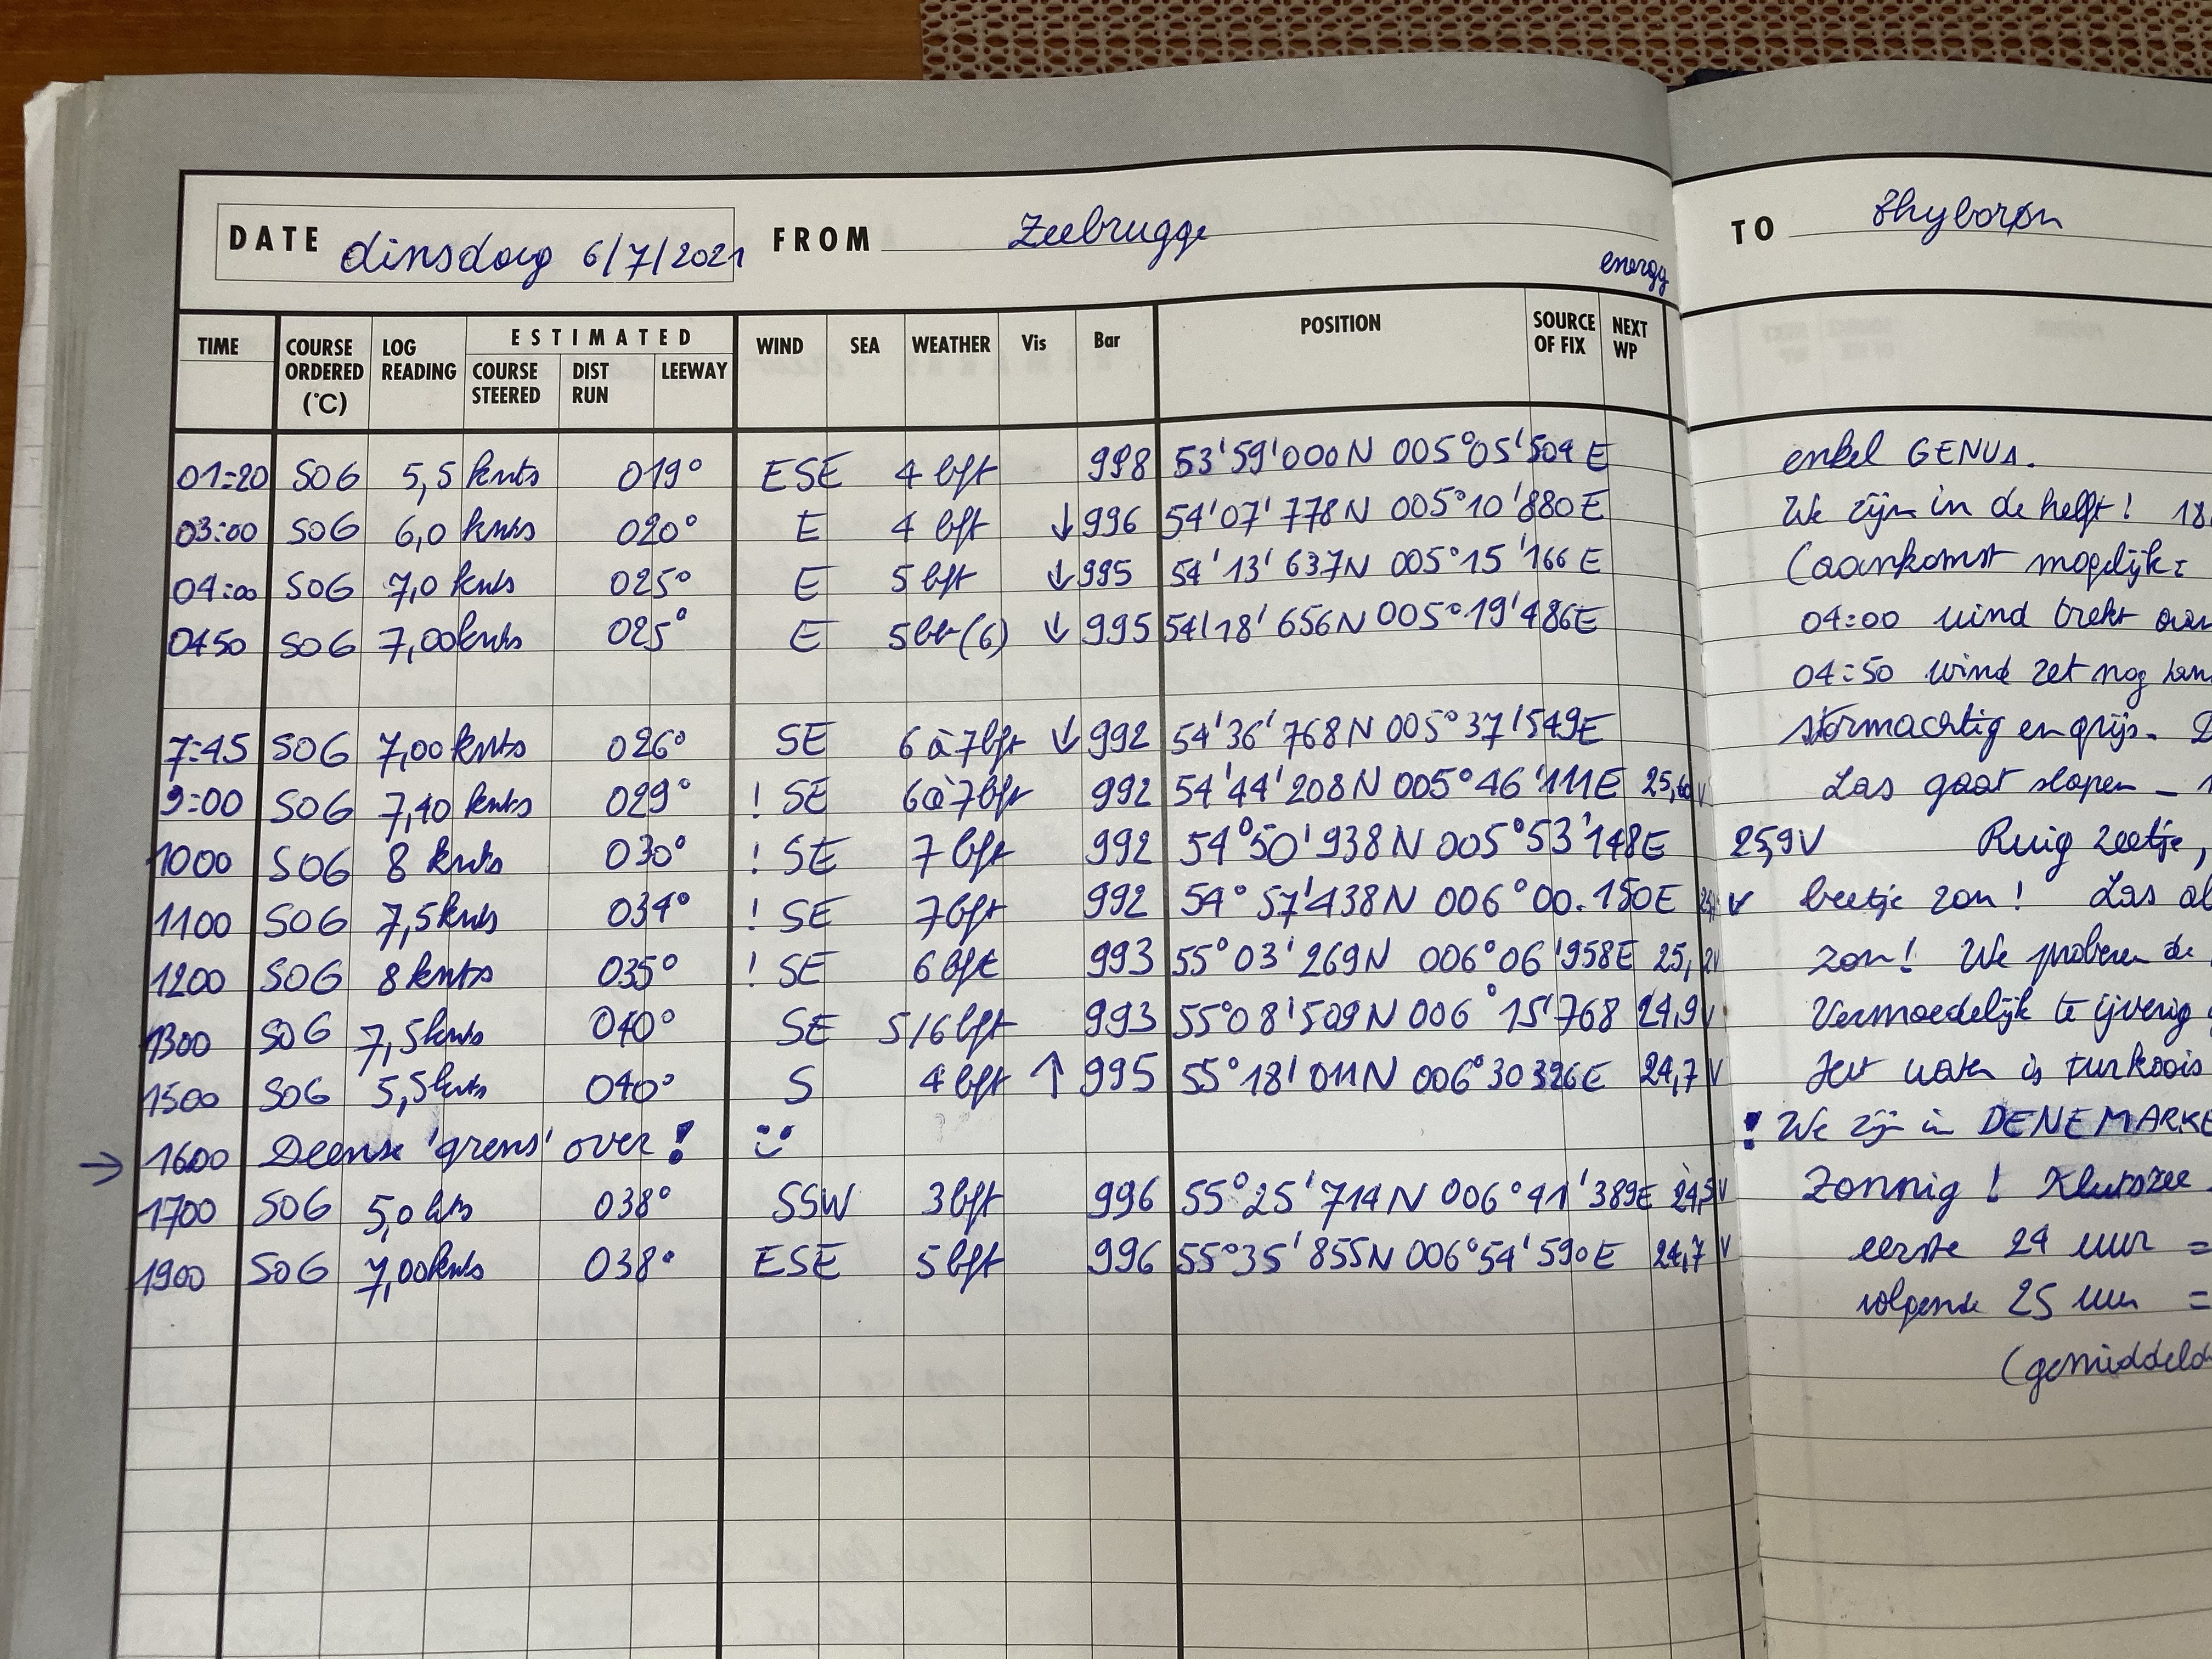 DATE dinsdag 6/7/2021 FROM Zeebrugge TO Thyborøn
energy
TIME COURSE ORDERED (°C) LOG READING ESTIMATED COURSE STEERED DIST RUN LEEWAY WIND SEA WEATHER Vis Bar POSITION SOURCE OF FIX NEXT WP
01:20 SOG 5,5 knts 019° ESE 4 bft 998 53'59'000N 005°05'504 E enkel GENUA.
03:00 SOG 6,0 knts 020° E 4 bft ↓ 996 54'07'778N 005°10'880E We zijn in de helft!
04:00 SOG 7,0 knts 025° E 5 bft ↓ 995 54'13'637N 005°15'166E (aankomst mogelijk:
0450 SOG 7,00knts 025° E 5bft(6) ↓ 995 54'18'656N 005°19'486E 04:00 wind trekt
04:50 wind zet nog
7:45 SOG 7,00knts 026° SE 6 à 7bft ↓ 992 54'36'768N 005°37'549E stormachtig en grijs.
9:00 SOG 7,40 knts 029° ! SE 6 à 7bft 992 54'44'208N 005°46'111E Las gaat slapen –
1000 SOG 8 knts 030° ! SE 7 bft 992 54°50'938N 005°53'148E 25,9V Ruig zeetje,
1100 SOG 7,5knts 034° ! SE 7bft 992 54°57'438N 006°00.150E V beetje zon! Las
1200 SOG 8 knts 035° ! SE 6 bft 993 55°03'269N 006°06'958E 25,2V zon! We proberen de
1300 SOG 7,5knts 040° SE 5/6bft 993 55°08'509N 006°15'768 24,9V Vermoedelijk te ijverig
1500 SOG 5,5knts 040° S 4 bft ↑ 995 55°18'011N 006°30 326E 24,7V Het water is turkoois
→ 1600 Deense 'grens' over! ! We zijn in DENEMARKE
1700 SOG 5,0 kts 038° SSW 3bft 996 55°25'714N 006°41'389E 24,5V Zonnig! Klutszee
1900 SOG 7,00knts 038° ESE 5bft 996 55°35'855N 006°54'590E 24,7V eerste 24 uur =
volgende 25 uur =
(gemiddeld